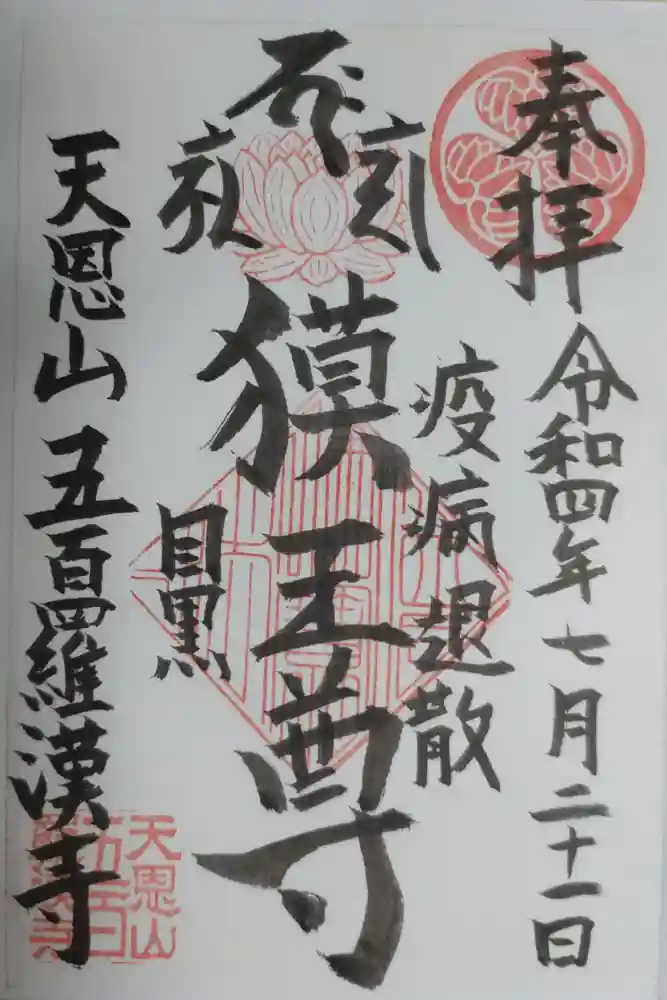 奉拝
令和四年七月二十一日
疫病退散
獏王尊
目黒
天恩山 五百羅漢寺
天恩山
五百
羅漢寺